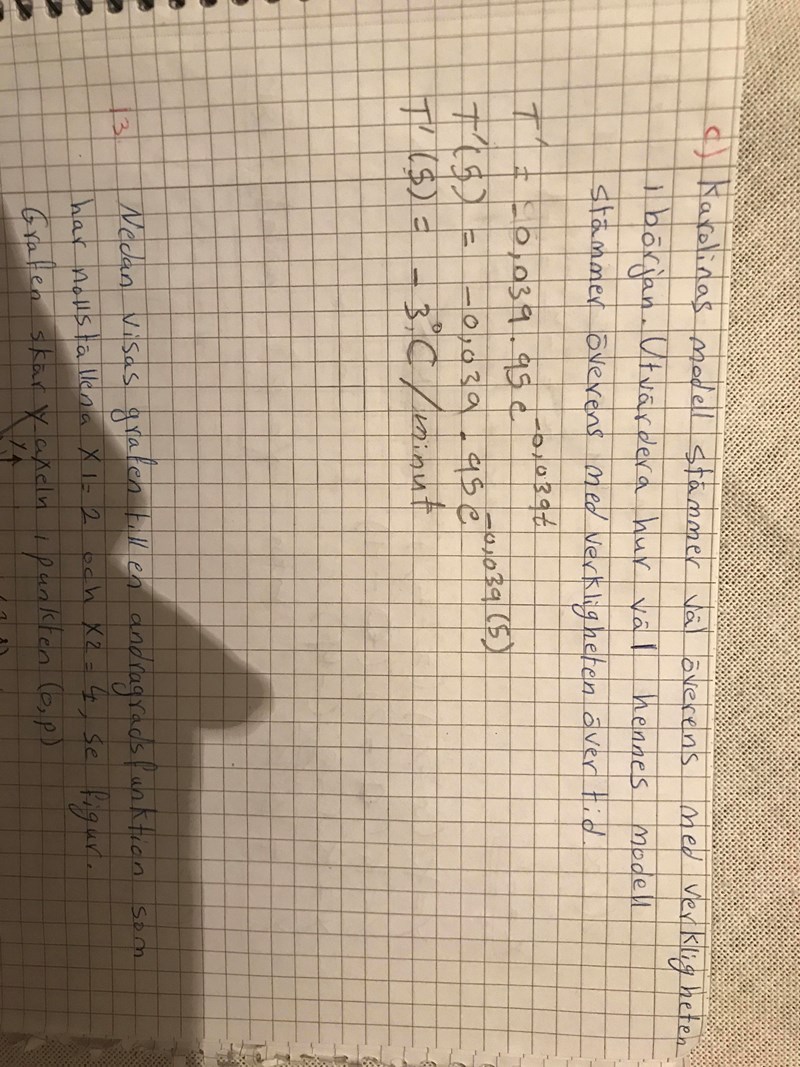 c) Karolinas modell stämmer väl överens med verkligheten
i början. Utvärdera hur väl hennes modell
stämmer överens med verkligheten över tid.
T' = -0,039 · 95 e^-0,039t
T'(5) = -0,039 · 95 e^-0,039(5)
T'(5) = -3°C/minut
13 Nedan visas grafen till en andragradsfunktion som
har nollställena x1=2 och x2=4, se figur.
Grafen skär y axeln i punkten (0,p)
y